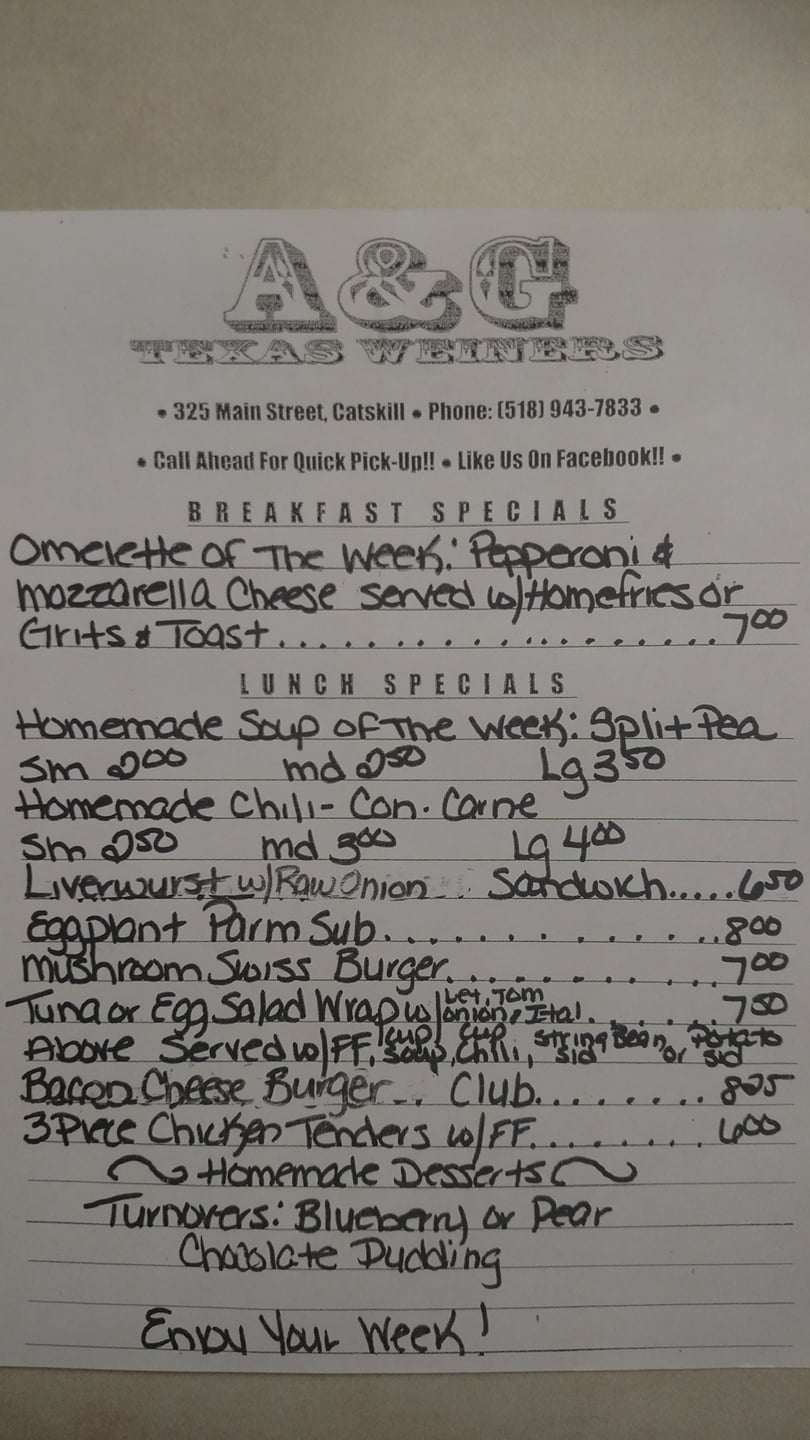 A&G
TEXAS WEINERS
• 325 Main Street, Catskill • Phone: (518) 943-7833 •
• Call Ahead For Quick Pick-Up!! • Like Us On Facebook!! •
BREAKFAST SPECIALS
Omelette of The Week: Pepperoni &
Mozzarella Cheese served w/Homefries or
Grits & Toast....................7.00
LUNCH SPECIALS
Homemade Soup of The Week: Split Pea
Sm 2.00 md 2.50 Lg 3.50
Homemade Chili-Con-Carne
Sm 2.50 md 3.00 Lg 4.00
Liverwurst w/Raw Onion Sandwich.....6.50
Eggplant Parm Sub.............8.00
Mushroom Swiss Burger.........7.00
Tuna or Egg Salad Wrap w/Let, Tom Onion, Ital......7.50
Above Served w/FF, Cup Soup, Cup Chili, String Bean Sld or Potato Sld
Bacon Cheese Burger... Club.........8.25
3 Piece Chicken Tenders w/FF........6.00
~Homemade Desserts~
Turnovers: Blueberry or Pear
Chocolate Pudding
Enjoy Your Week!